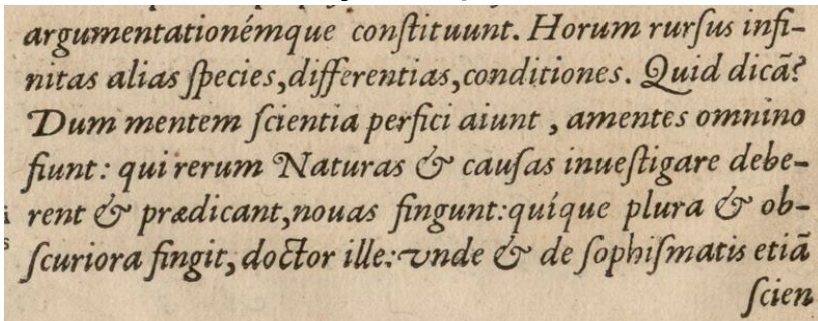 argumentationémque conſtituunt. Horum rurſus infi-
nitas alias ſpecies,differentias,conditiones. Quid dicã?
Dum mentem ſcientia perfici aiunt , amentes omnino
fiunt: qui rerum Naturas & cauſas inueſtigare debe-
rent & prædicant,nouas fingunt:quíque plura & ob-
ſcuriora fingit, doctor ille: vnde & de ſophiſmatis etiã
ſcien